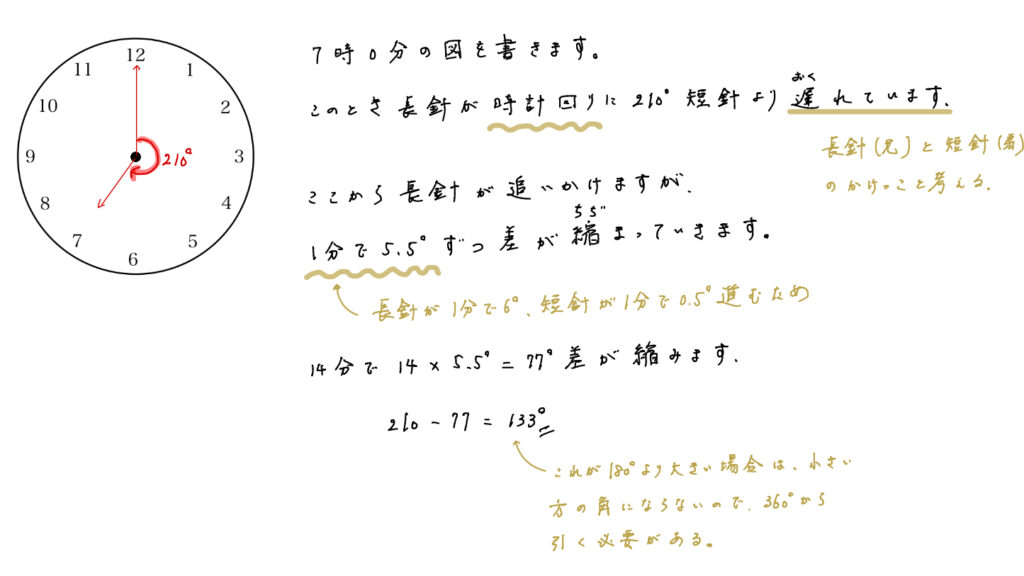 12
11
1
10
2
9
3
8
4
7
5
6
210°
7時0分の図を書きます。
このとき長針が時計回りに210°短針より遅れています。
おく
長針(兄)と短針(弟)
のかけっこと考える。
ここから長針が追いかけますが、
ちぢ
1分で5.5°ずつ差が縮まっていきます。
長針が1分で6°、短針が1分で0.5°進むため
14分で 14×5.5°=77°差が縮みます。
210-77=133°
これが180°より大きい場合は、小さい
方の角にならないので、360°から
引く必要がある。